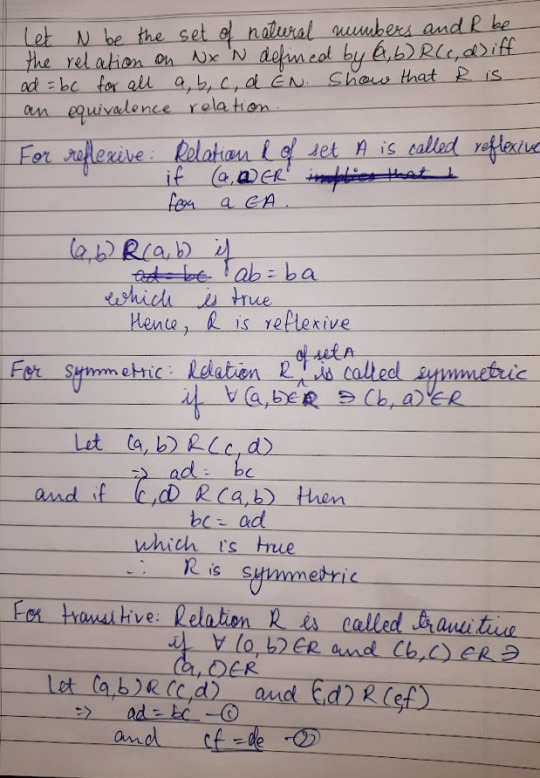 Let N be the set of natural numbers and R be
the relation on N x N defined by (a,b) R (c,d) iff
ad = bc for all a, b, c, d ∈ N. Show that R is
an equivalence relation.
For reflexive: Relation R of set A is called reflexive
if (a,a) ∈ R implies that b
for a ∈ A.
(a,b) R (a,b) if
ad = bc ab = ba
which is true
Hence, R is reflexive
of set A
For symmetric: Relation R ^ is called symmetric
if ∀ (a,b) ∈ R ∋ (b,a) ∈ R
Let (a,b) R (c,d)
⇒ ad = bc
and if (c,d) R (a,b) then
bc = ad
which is true
∴ R is symmetric
For transitive: Relation R is called transitive
if ∀ (a,b) ∈ R and (b,c) ∈ R ∋
(a,c) ∈ R
Let (a,b) R (c,d) and (c,d) R (e,f)
⇒ ad = bc - ①
and cf = de - ②